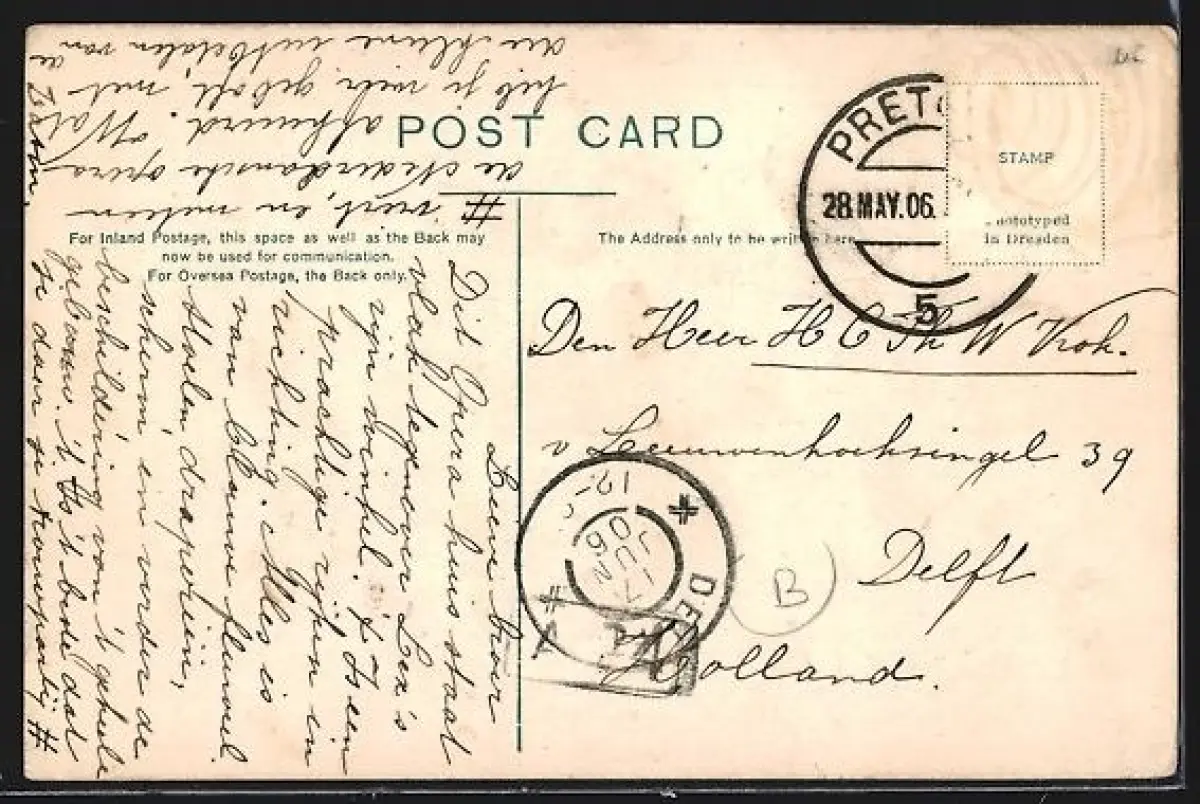 POST CARD
For Inland Postage, this space as well as the Back may
now be used for communication.
For Oversea Postage, the Back only.
The Address only to be written here.
STAMP
Phototyped
in Dresden
PRET
28 MAY. 06.
5
Den Heer H C Th W Kok.
v Leeuwenhoeksingel 39
Delft
Holland.
B
DE
12-
7 JU
06
Lieve broer
Dit Opera huis staat
vlak tegenover Lex's
zijn winkel. 't Is een
prachtige rijke in
richting. Alles is
van blauwe fluweel
stoelen, draperieën,
scherm, en verder de
beschildering van 't geheele
gebouw. 't Is 't beide dat
ze daar ze trouwpartij #
# viert, en meteen
de Nederlandsche opera
afhuurd. Wat
heb je weer geboft, met
die kleine uitbetalen van
de Boom,